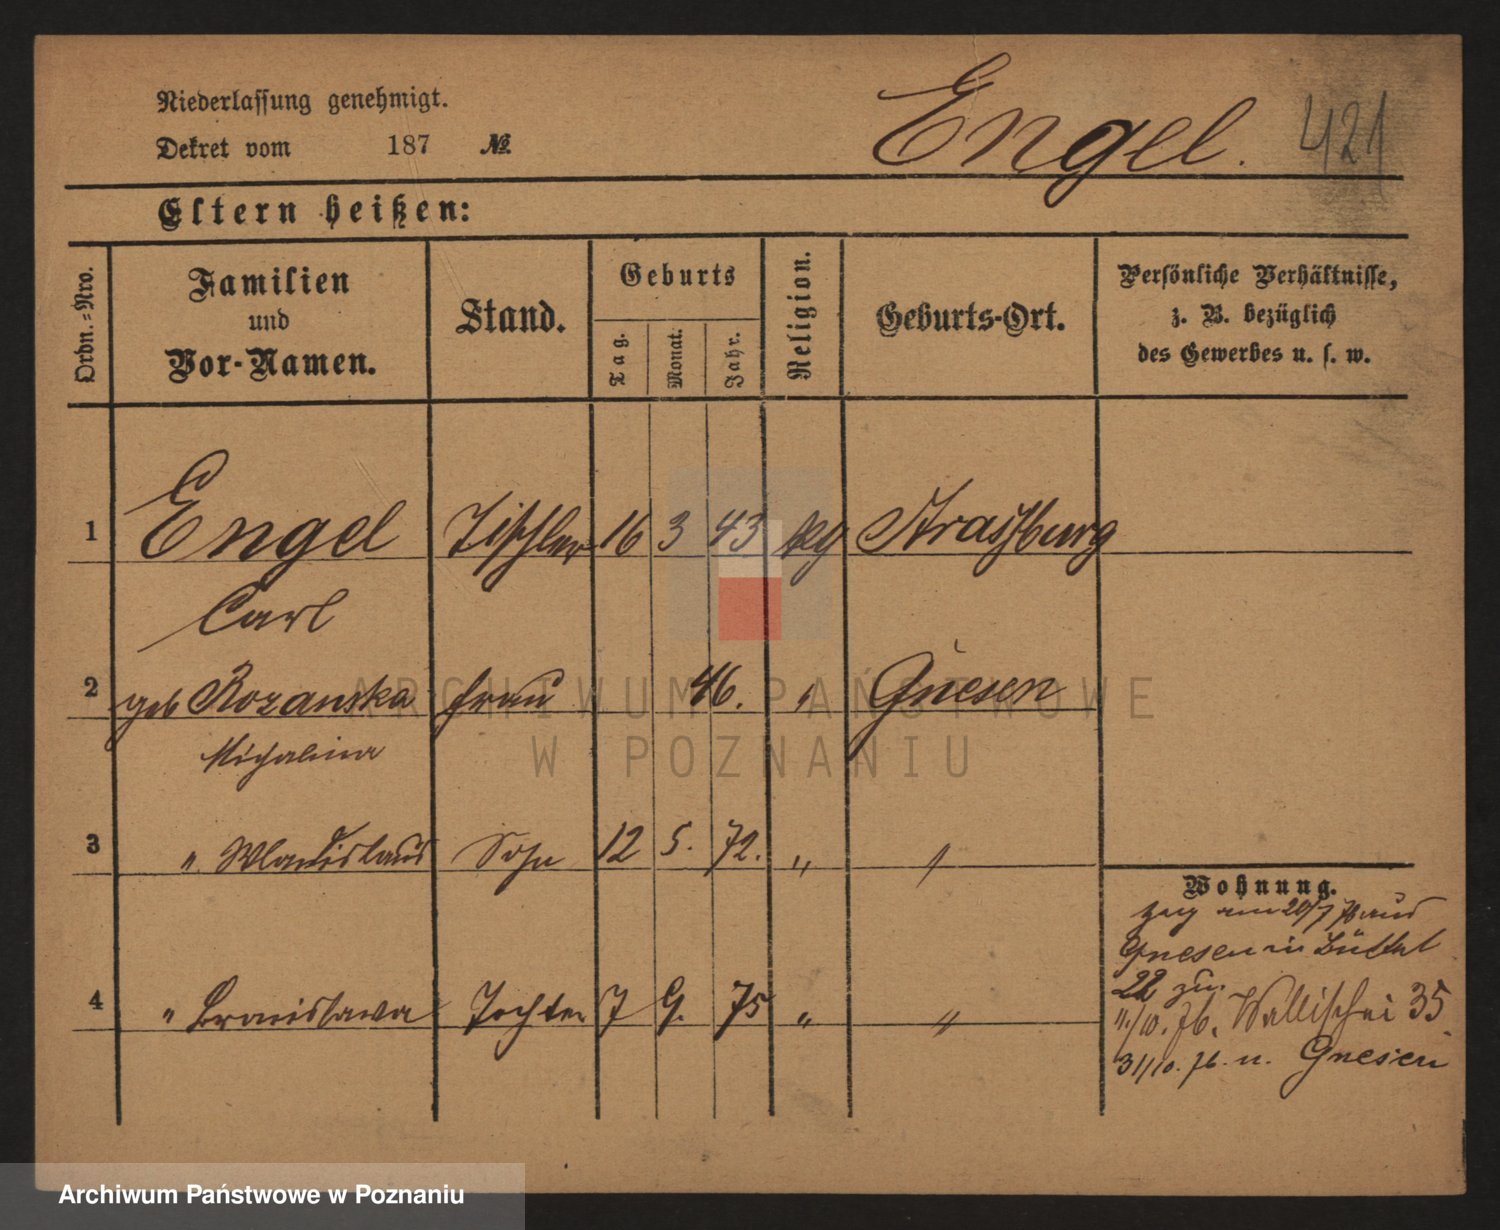 Niederlassung genehmigt.
Engel.
421
Dekret vom 187 №
Eltern heißen:
Ordn.-Nro.
Familien und Vor-Namen.
Stand.
Geburts
Tag.
Monat.
Jahr.
Religion.
Geburts-Ort.
Persönliche Verhältnisse,
z. B. bezüglich
des Gewerbes u. s. w.
1 Engel Tischler 16 3 43 Strassburg
Carl
2 geb Rozanska Frau 46. " Gnesen
Michalina
3 " Wladislaus Sohn 12 5. 72. " "
Wohnung.
zog am 20/7 76 aus
Gnesen in Büttel
22 zu.
4 " Bronislawa Tochter 7 9. 75 " "
11./10. 76. Wallischei 35
31/10. 76. n. Gnesen
ARCHIWUM PAŃSTWOWE
W POZNANIU
Archiwum Państwowe w Poznaniu